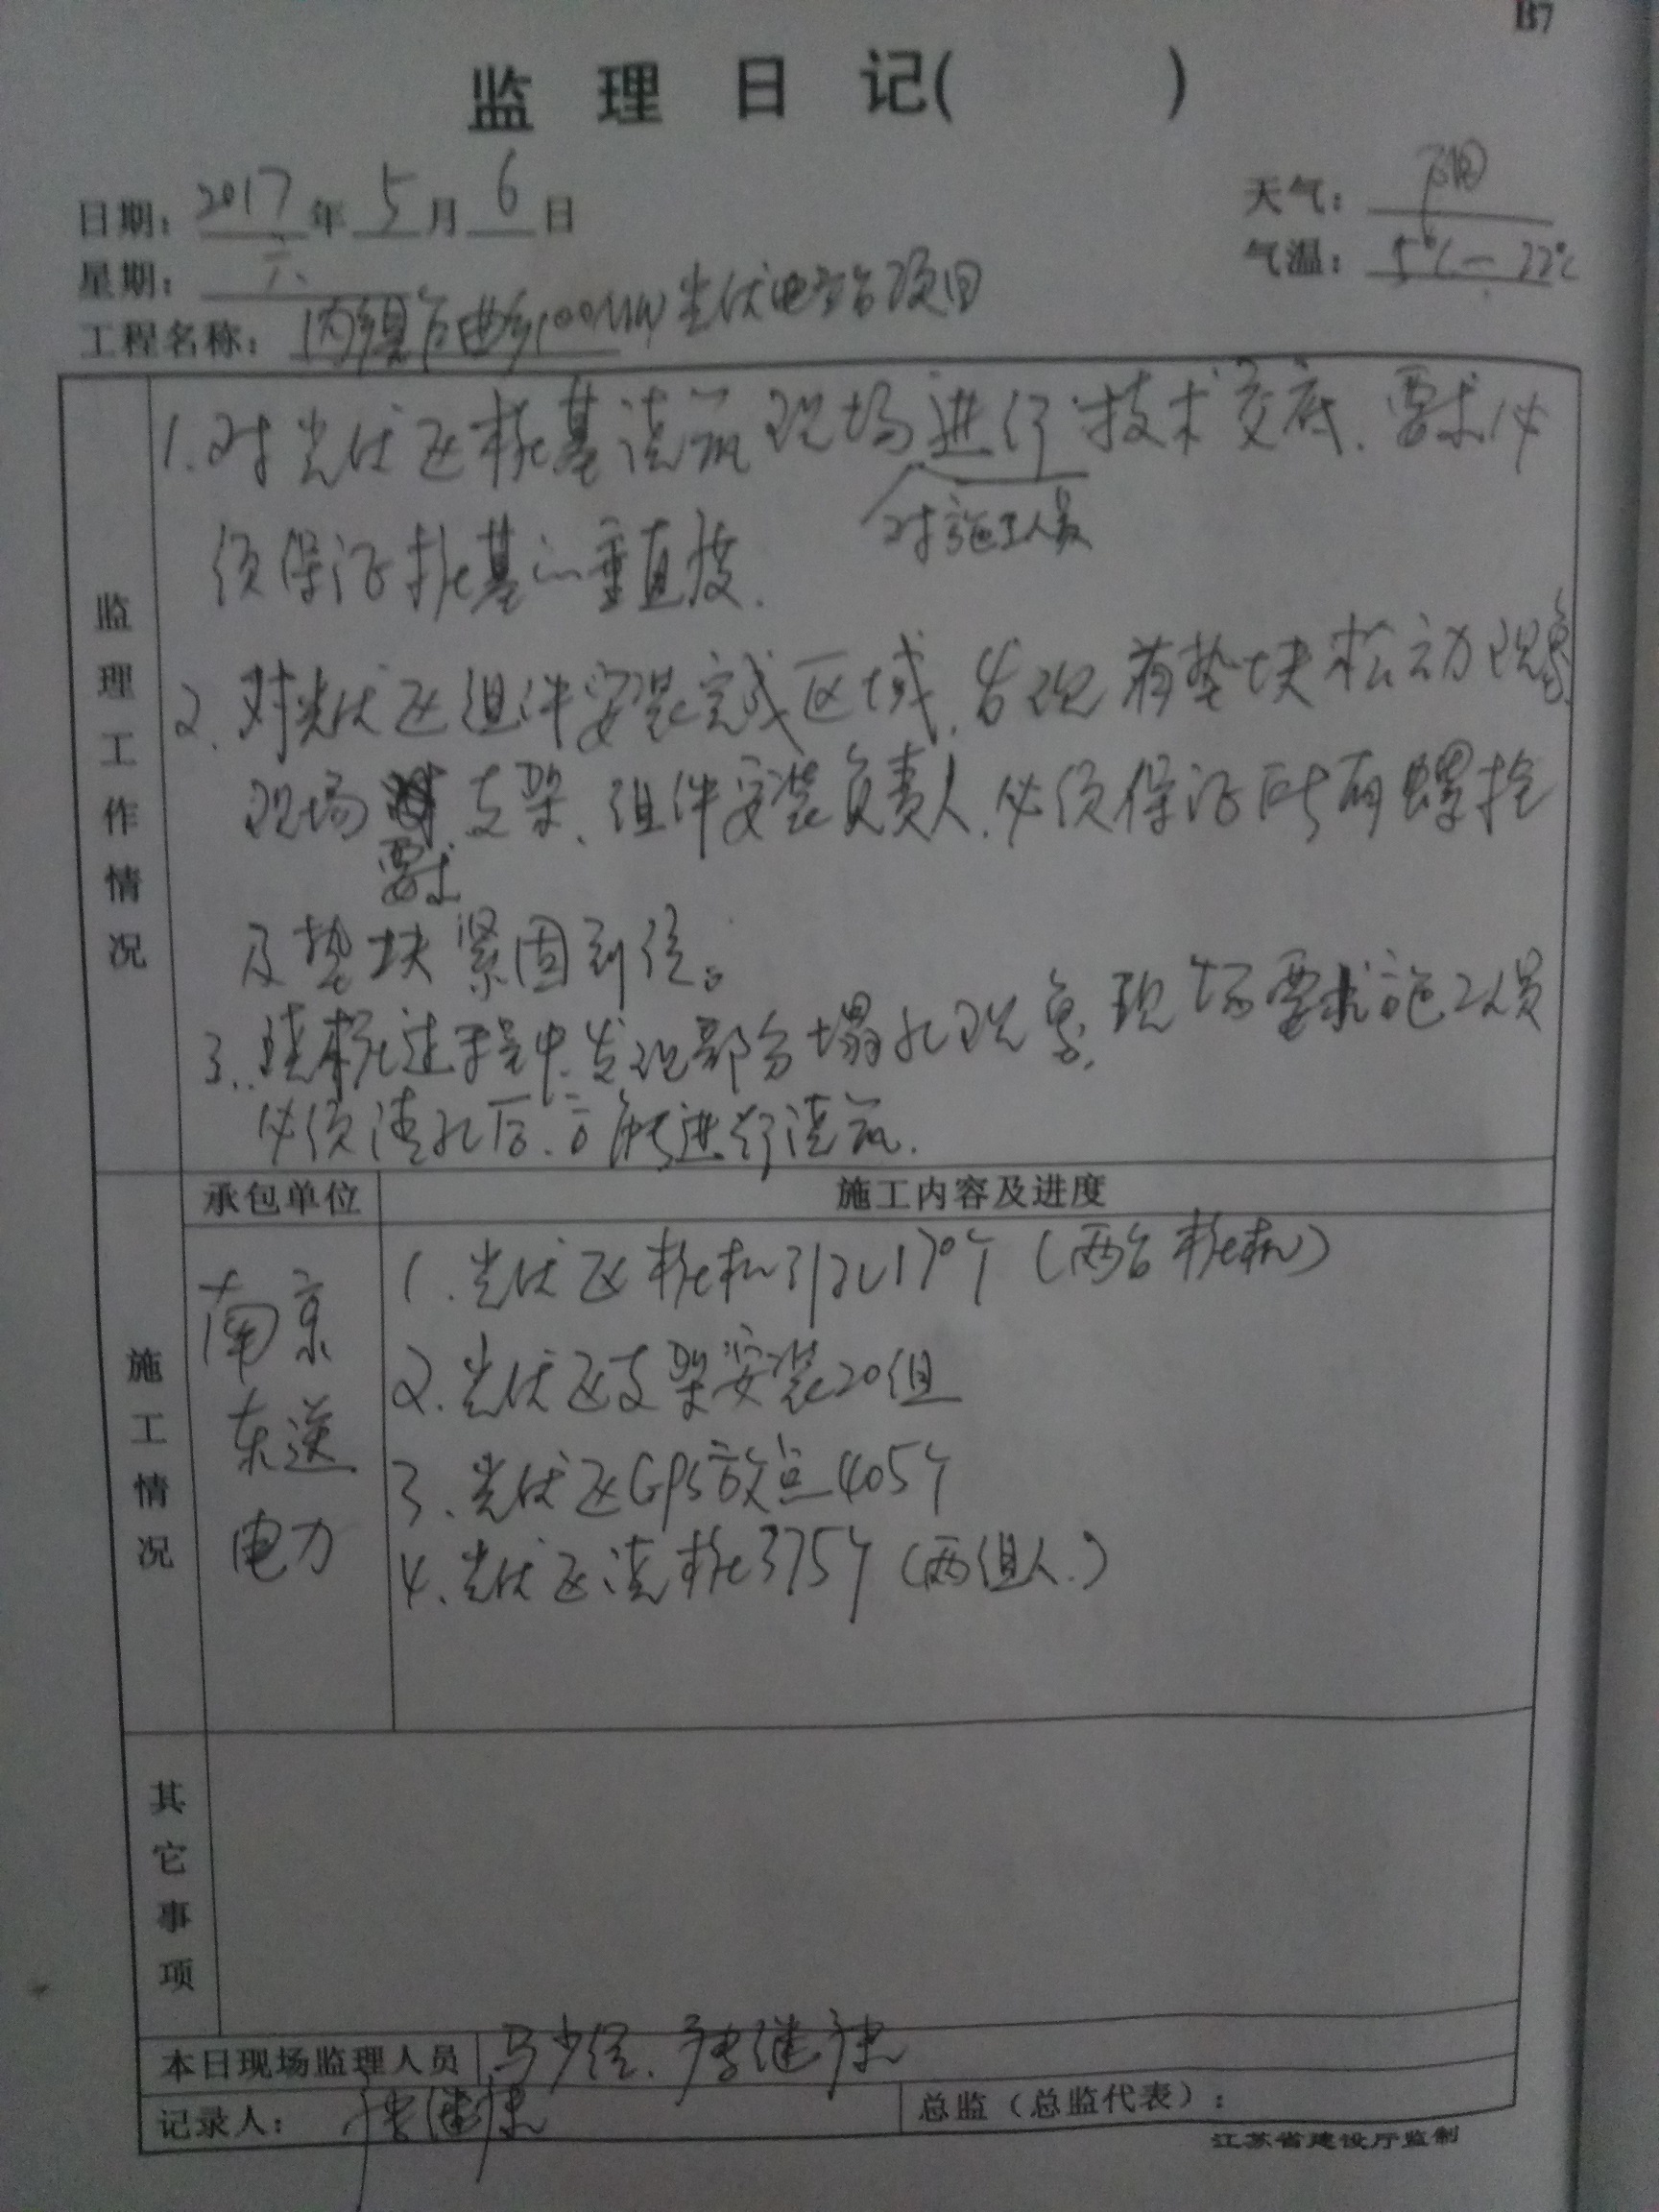 B7
监理日记( )
日期：2017年5月6日
天气：阴
星期：六
气温：5℃-22℃
工程名称：内乡县 乡100MW光伏电站项目
监理工作情况
1.对光伏区桩基浇筑现场进行技术交底.要求必
对施工人员
须保证桩基的垂直度.
2.对光伏区组件安装完成区域,发现有垫块松动现象,
现场 支架、组件安装负责人.必须保证所有螺栓
要求
及垫块紧固到位。
3.浇桩过程中.发现部分塌孔现象,现场要求施工人员
必须清孔后.方能进行浇筑.
承包单位
施工内容及进度
施工情况
南京
东送
电力
1.光伏区桩机引孔170个(两台桩机)
2.光伏区支架安装20组
3.光伏区GPS放点405个
4.光伏区浇桩375个(两组人.)
其它事项
本日现场监理人员
马少 . 继康
记录人：
继康
总监（总监代表）：
江苏省建设厅监制